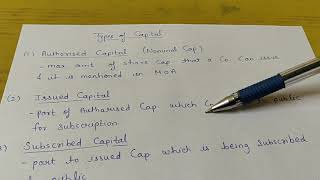 Types of Capital
(1) Authorised Capital (Nominal Cap)
- max amt of share cap that a co. can issue
& it is mentioned in MOA
(2) Issued Capital
- part of Authorised Cap which public
for subscription
) Subscribed Capital
- part to issued Cap which is being subscribed
public